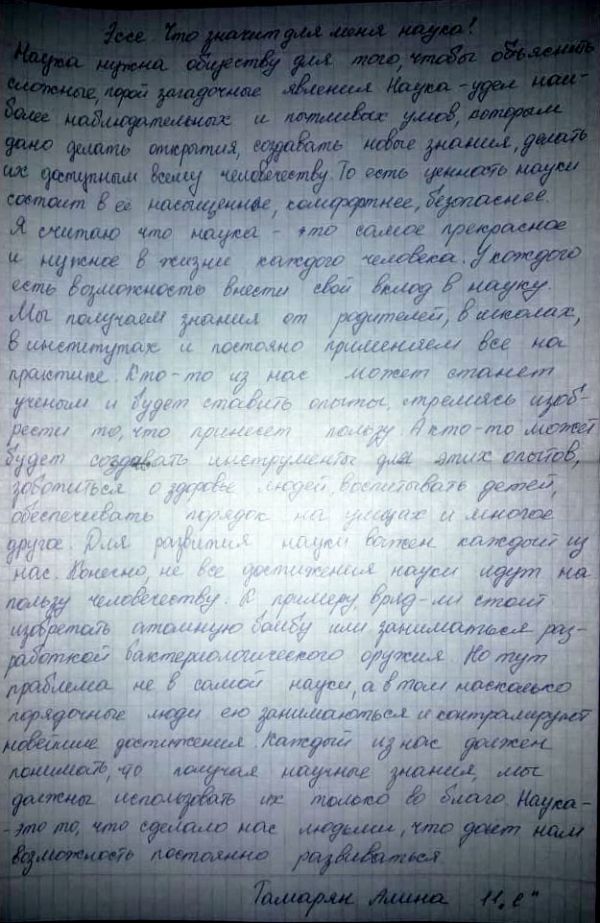 Эссе. Что значит для меня наука!
Наука нужна обществу для того, чтобы объяснить
сложные, порой загадочные явления Наука - удел наи-
более наблюдательных и пытливых умов, которым
дано делать открытия, создавать новые знания, делать
их доступным всему человечеству. То есть ценность науки
состоит в её насыщенные, комфортнее, безопаснее.
Я считаю что наука - это самое прекрасное
и нужное в жизни каждого человека. У каждого
есть возможность внести свой вклад в науку.
Мы получаем знания от родителей, в школах,
в институтах и постояно применяем все на
практике. Кто-то из нас может станет
ученым и будет ставить опыты, стремясь изоб-
рести то, что принесет пользу. А кто-то может
будет создавать инструменты для этих опытов,
зоботиться о здоровье людей, воспитывать детей,
обеспечивать порядок на улицах и многое
другое. Для развития науки важен каждый из
нас. Конечно, не все достижения науки идут на
пользу человечеству. К примеру, вряд-ли стоит
изобретать атомную бомбу или заниматься раз-
работкой бактериологического оружия. Но тут
праблема не в самой науки, а в том насколько
порядочные люди ею занимаються и контралируют
новейшие достижения. Каждый из нас должен
понимать, что получая научные знания, мы
должны использовать их только во благо. Наука-
-это то, что сделало нас людьми, что дает нам
возможность постоянно развиваться
Тамарян Алина 11 „е"